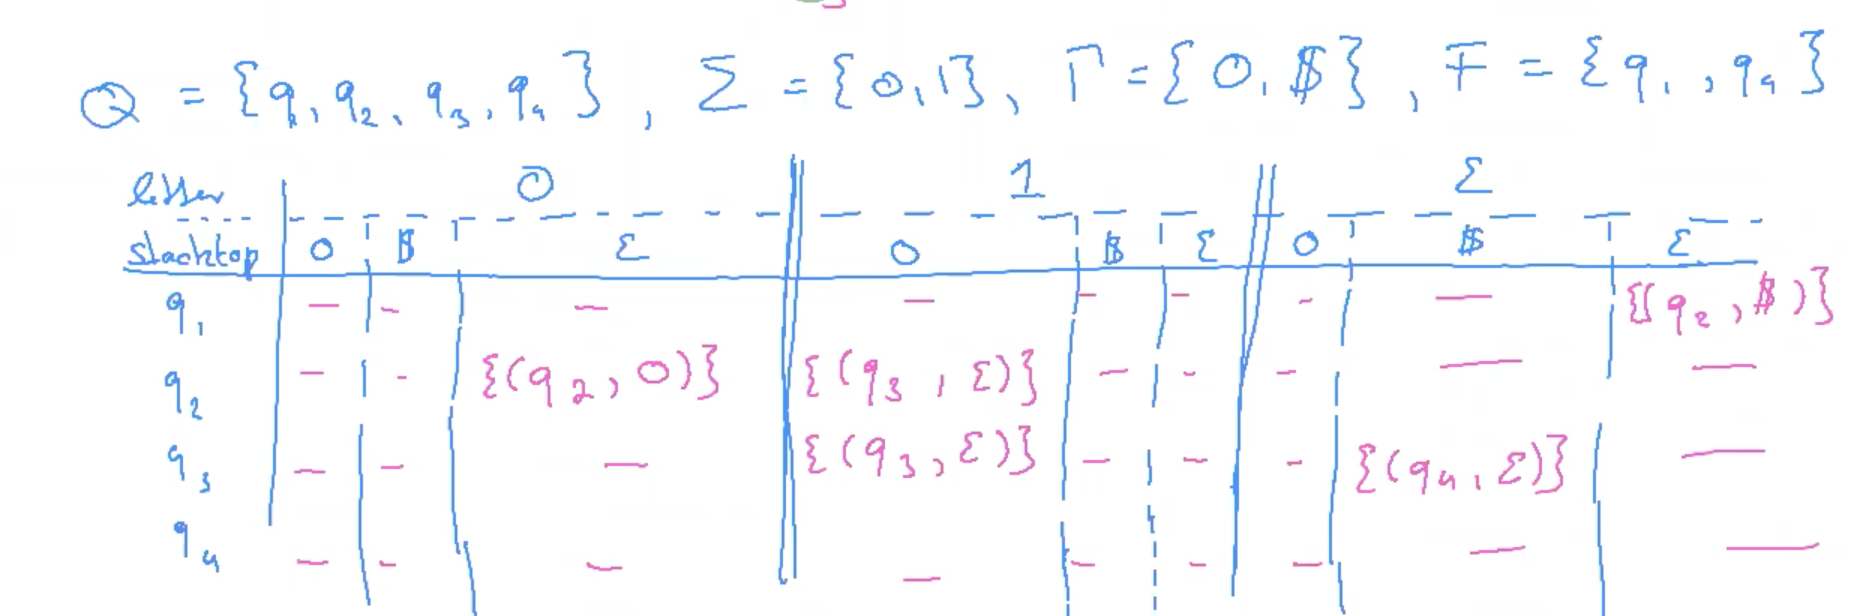 Q = {q₁, q₂, q₃, q₄}, Σ = {0,1}, Γ = {0,$}, F = {q₁, q₄}
0 1 ε
stacktop 0 $ ε 0 $ ε 0 $ ε
q₁ – – – – – – – – {(q₂, $)}
q₂ – – {(q₂, 0)} {(q₃, ε)} – – – – –
q₃ – – – {(q₃, ε)} – – – {(q₄, ε)} –
q₄ – – – – – – – – –